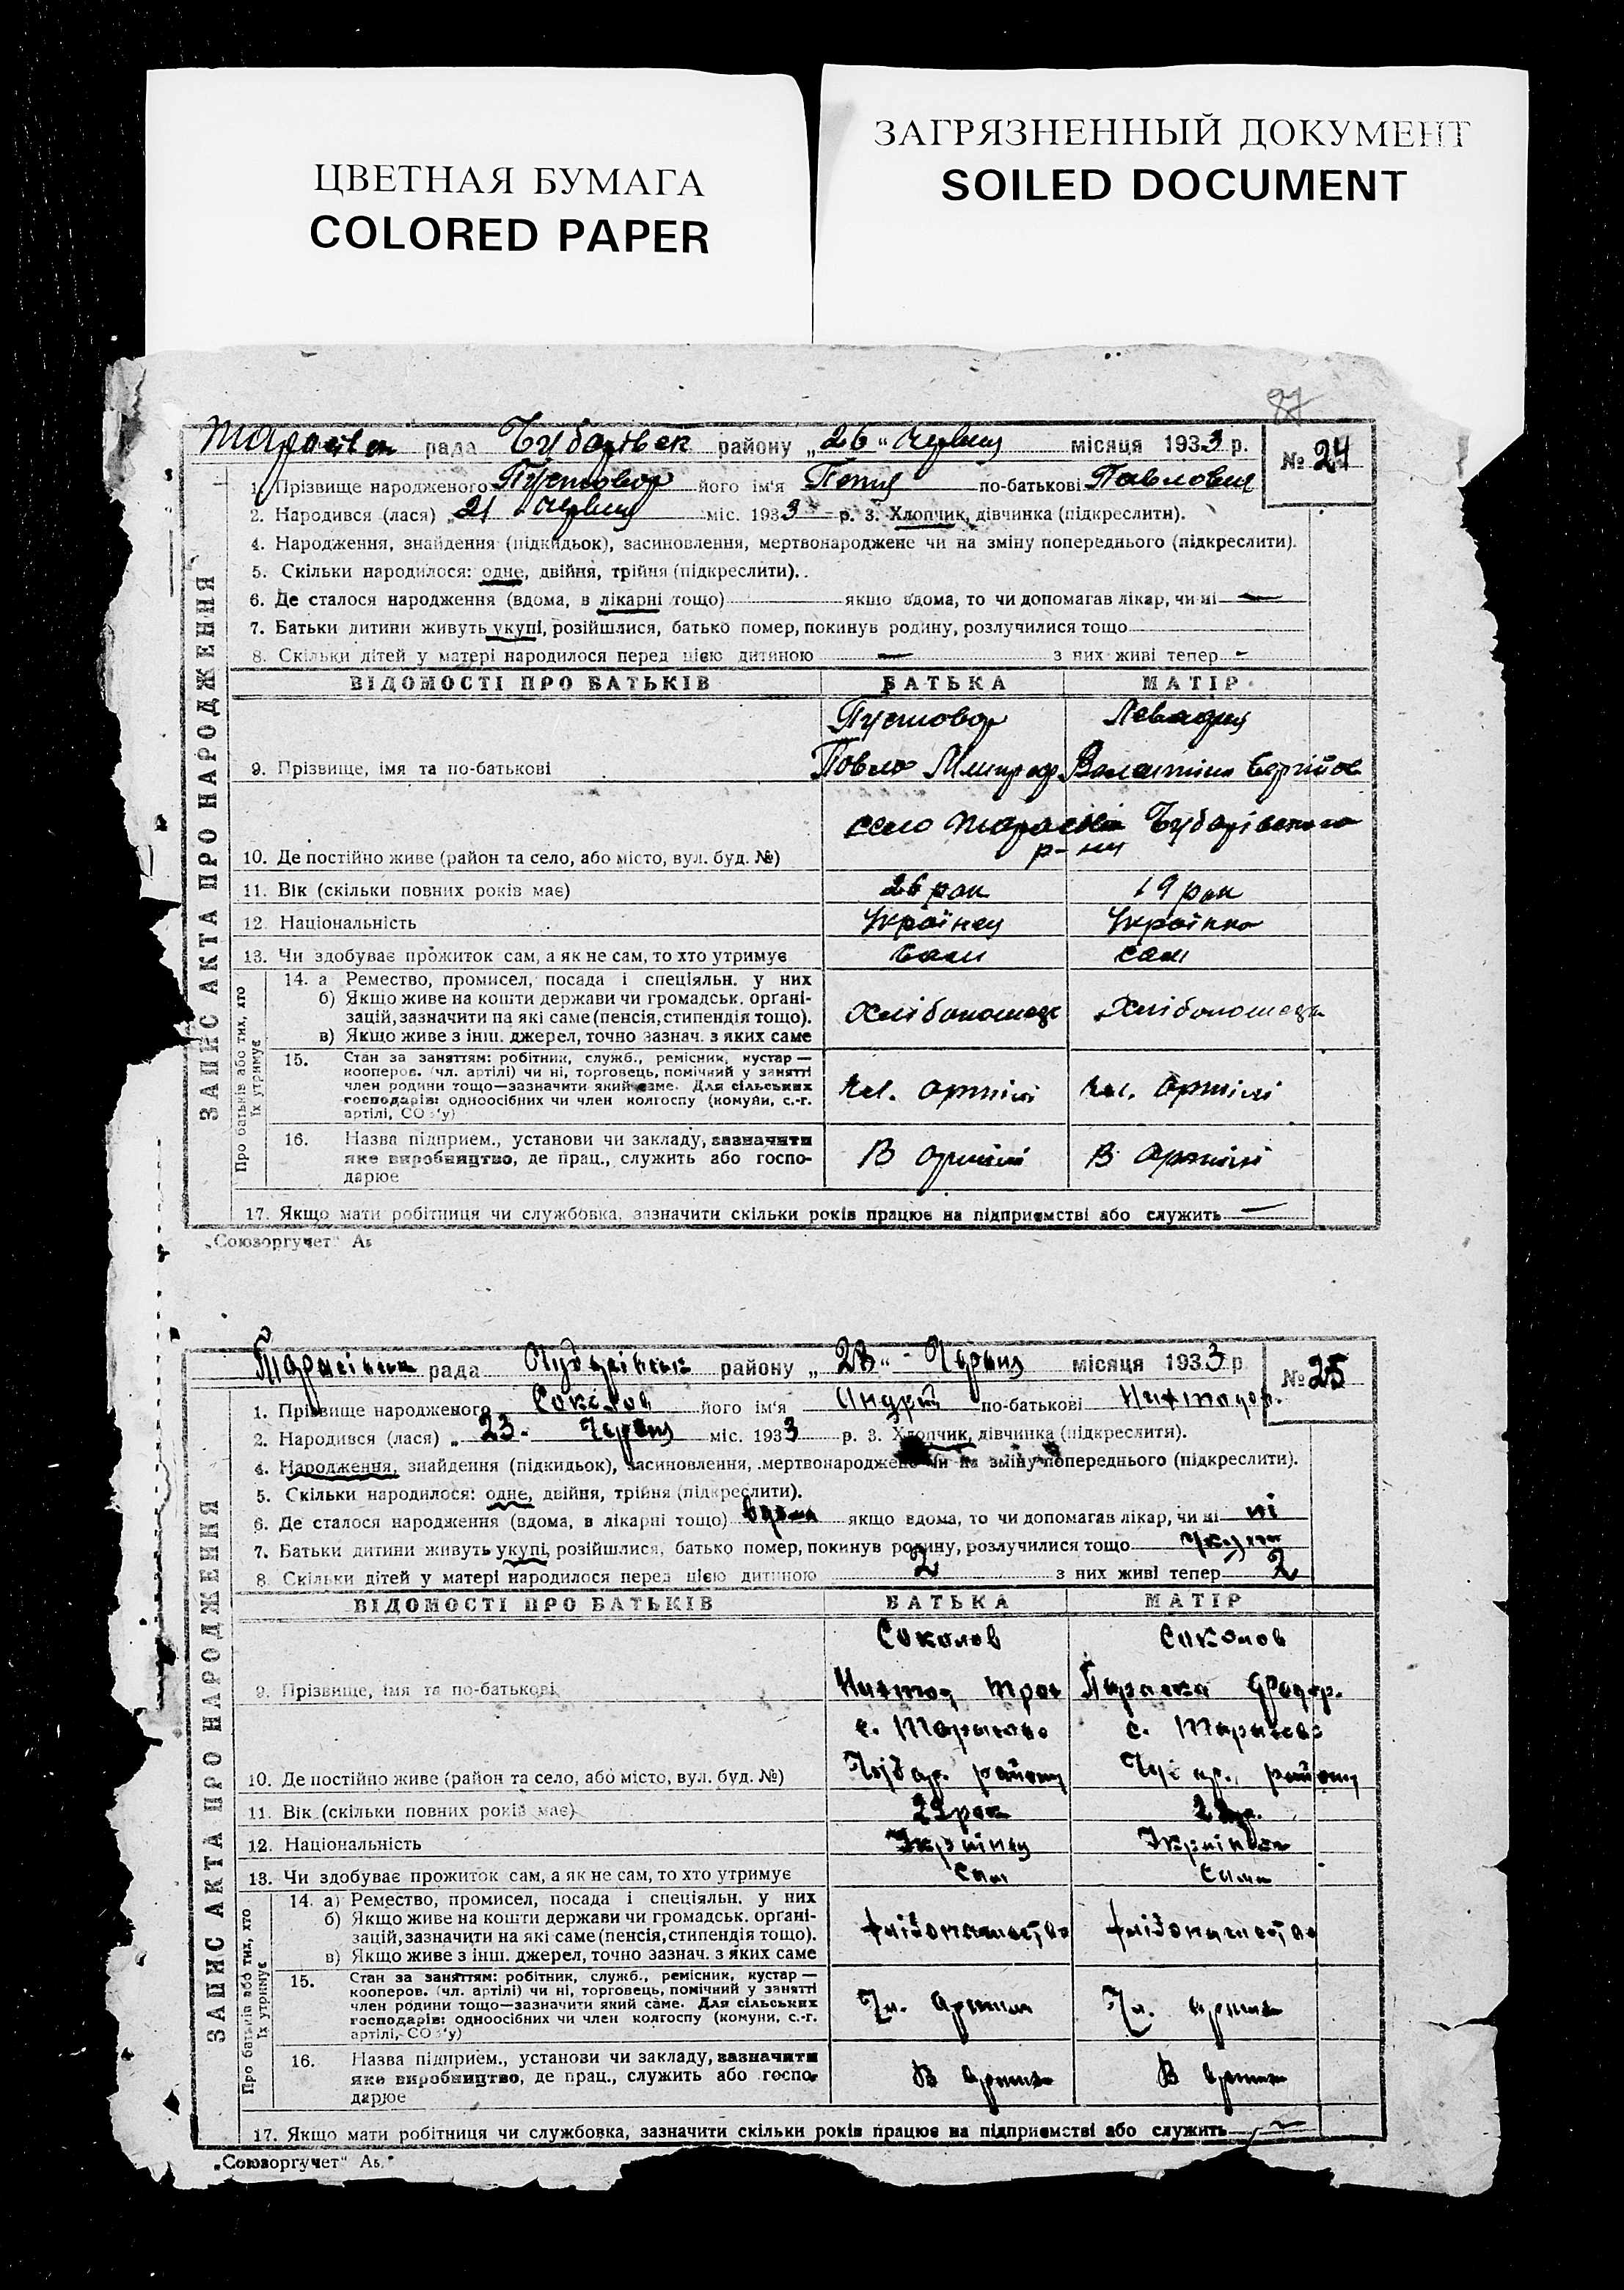 ЦВЕТНАЯ БУМАГА
COLORED PAPER
ЗАГРЯЗНЕННЫЙ ДОКУМЕНТ
SOILED DOCUMENT
87
рада Чубарівск району „26" червня місяця 1933 р. № 24
ЗАПИС АКТА ПРО НАРОДЖЕННЯ
1. Прізвище народженого Пустовар його ім'я Петя по-батькові Павлович
2. Народився (лася) „21 червня міс. 1933 р. 3. Хлопчик, дівчинка (підкреслити).
4. Народження, знайдення (підкидьок), засиновлення, мертвонароджене чи на зміну попереднього (підкреслити).
5. Скільки народилося: одне, двійня, трійня (підкреслити).
6. Де сталося народження (вдома, в лікарні тощо) якщо вдома, то чи допомагав лікар, чи ні —
7. Батьки дитини живуть укупі, розійшлися, батько помер, покинув родину, розлучилися тощо
8. Скільки дітей у матері народилося перед цією дитиною — з них живі тепер -
ВІДОМОСТІ ПРО БАТЬКІВ БАТЬКА МАТІР
Пустовар
9. Прізвище, імя та по-батькові Павло
село Чубарівського
р-ну
10. Де постійно живе (район та село, або місто, вул. буд. №)
11. Вік (скільки повних років має) 26 рок 19 рок
12. Національність Українец Українка
13. Чи здобуває прожиток сам, а як не сам, то хто утримує сам сам
Про батьків або тих, хто їх утримує
14. а Ремество, промисел, посада і спеціяльн. у них
б) Якщо живе на кошти держави чи громадськ. орґані-
зацій, зазначити на які саме (пенсія, стипендія тощо).
в) Якщо живе з інш. джерел, точно зазнач. з яких саме
15. Стан за заняттям: робітник, служб., ремісник, кустар —
кооперов. (чл. артілі) чи ні, торговець, помічний у занятті
член родини тощо—зазначити який саме. Для сільських
господарів: одноосібних чи член колгоспу (комуни, с.-г.
артілі, СОЗ'у) чл. артілі чл. артілі
16. Назва підприєм., установи чи закладу, зазначити
яке виробництво, де прац., служить або госпо- В артілі В артілі
дарює
17. Якщо мати робітниця чи службовка, зазначити скільки років працює на підприємстві або служить —
„Союзоргучет" Аз
рада району „28" - Червня місяця 1933 р. № 25
ЗАПИС АКТА ПРО НАРОДЖЕННЯ
1. Прізвище народженого Соколов його ім'я Андрій по-батькові
2. Народився (лася) „23- Червня міс. 1933 р. 3. Хлопчик, дівчинка (підкреслити).
4. Народження, знайдення (підкидьок), засиновлення, мертвонароджене чи на зміну попереднього (підкреслити).
5. Скільки народилося: одне, двійня, трійня (підкреслити).
6. Де сталося народження (вдома, в лікарні тощо) вдома якщо вдома, то чи допомагав лікар, чи ні ні
7. Батьки дитини живуть укупі, розійшлися, батько помер, покинув родину, розлучилися тощо укупі
8. Скільки дітей у матері народилося перед цією дитиною 2 з них живі тепер 2
ВІДОМОСТІ ПРО БАТЬКІВ БАТЬКА МАТІР
Соколов Соколов
9. Прізвище, імя та по-батькові Параска Федор.
с. с.
10. Де постійно живе (район та село, або місто, вул. буд. №) Чубар. району Чубар. району
11. Вік (скільки повних років має) 29 рок
12. Національність Українец Українка
13. Чи здобуває прожиток сам, а як не сам, то хто утримує Сам Сама
Про батьків або тих, хто їх утримує
14. а) Ремество, промисел, посада і спеціяльн. у них
б) Якщо живе на кошти держави чи громадськ. орґані-
зацій, зазначити на які саме (пенсія, стипендія тощо).
в) Якщо живе з інш. джерел, точно зазнач. з яких саме
15. Стан за заняттям: робітник, служб., ремісник, кустар —
кооперов. (чл. артілі) чи ні, торговець, помічний у занятті
член родини тощо—зазначити який саме. Для сільських
господарів: одноосібних чи член колгоспу (комуни, с.-г.
артілі, СОЗ'у) Чл. Чл.
16. Назва підприєм., установи чи закладу, зазначити
яке виробництво, де прац., служить або госпо- В В
дарює
17. Якщо мати робітниця чи службовка, зазначити скільки років працює на підприємстві або служить
„Союзоргучет" Аз.